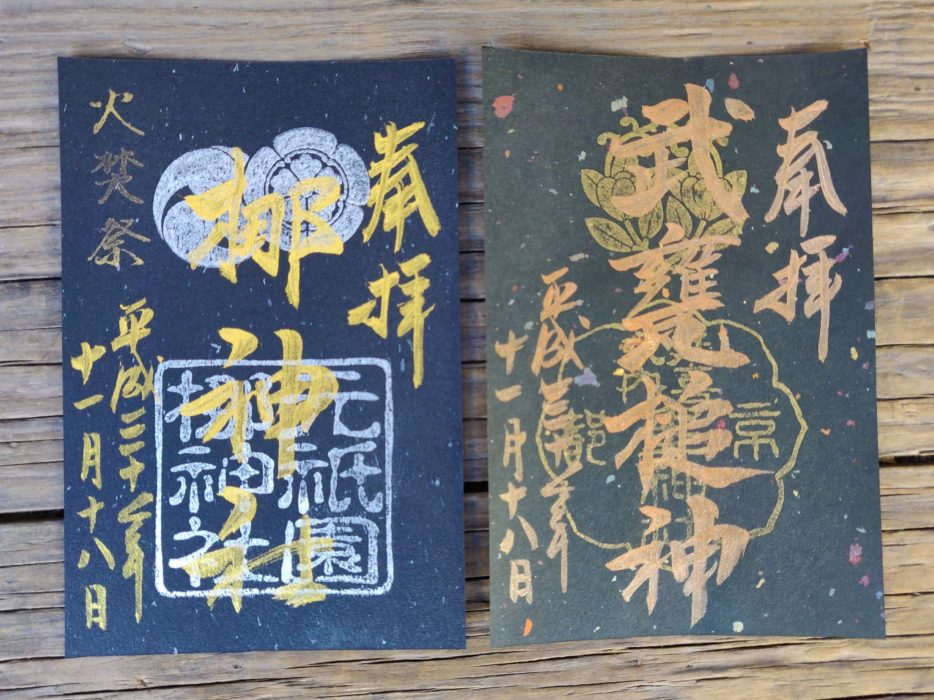 奉拝
梛神社
元祇園
梛神社
火焚祭
平成三十年
十一月十八日
奉拝
武甕槌神
京
都
平成三十年
十一月十八日